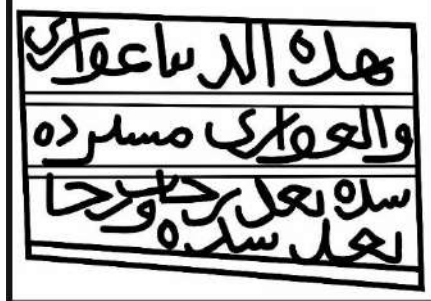 هذه الدنيا عوارى
والعوارى مسترده
شده بعد رخا ورخا
بعد شده